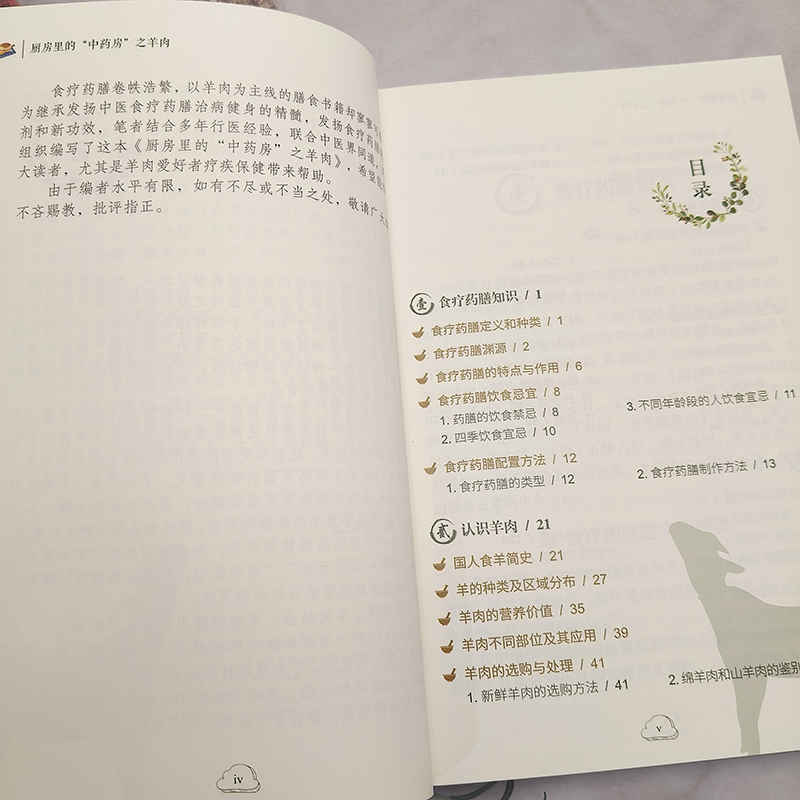 厨房里的“中药房”之羊肉
食疗药膳卷帙浩繁，以羊肉为主线的膳食书籍却寥寥
为继承发扬中医食疗药膳治病健身的精髓，发扬食疗药膳
剂和新功效，笔者结合多年行医经验，联合中医界同道，
组织编写了这本《厨房里的“中药房”之羊肉》，希望能
大读者，尤其是羊肉爱好者疗疾保健带来帮助。
由于编者水平有限，如有不尽或不当之处，敬请广大
不吝赐教，批评指正。
iv
目录
壹 食疗药膳知识 / 1
食疗药膳定义和种类 / 1
食疗药膳渊源 / 2
食疗药膳的特点与作用 / 6
食疗药膳饮食忌宜 / 8
1. 药膳的饮食禁忌 / 8
2. 四季饮食宜忌 / 10
3. 不同年龄段的人饮食宜忌 / 11
食疗药膳配置方法 / 12
1. 食疗药膳的类型 / 12
2. 食疗药膳制作方法 / 13
贰 认识羊肉 / 21
国人食羊简史 / 21
羊的种类及区域分布 / 27
羊肉的营养价值 / 35
羊肉不同部位及其应用 / 39
羊肉的选购与处理 / 41
1. 新鲜羊肉的选购方法 / 41
2. 绵羊肉和山羊肉的鉴别
v